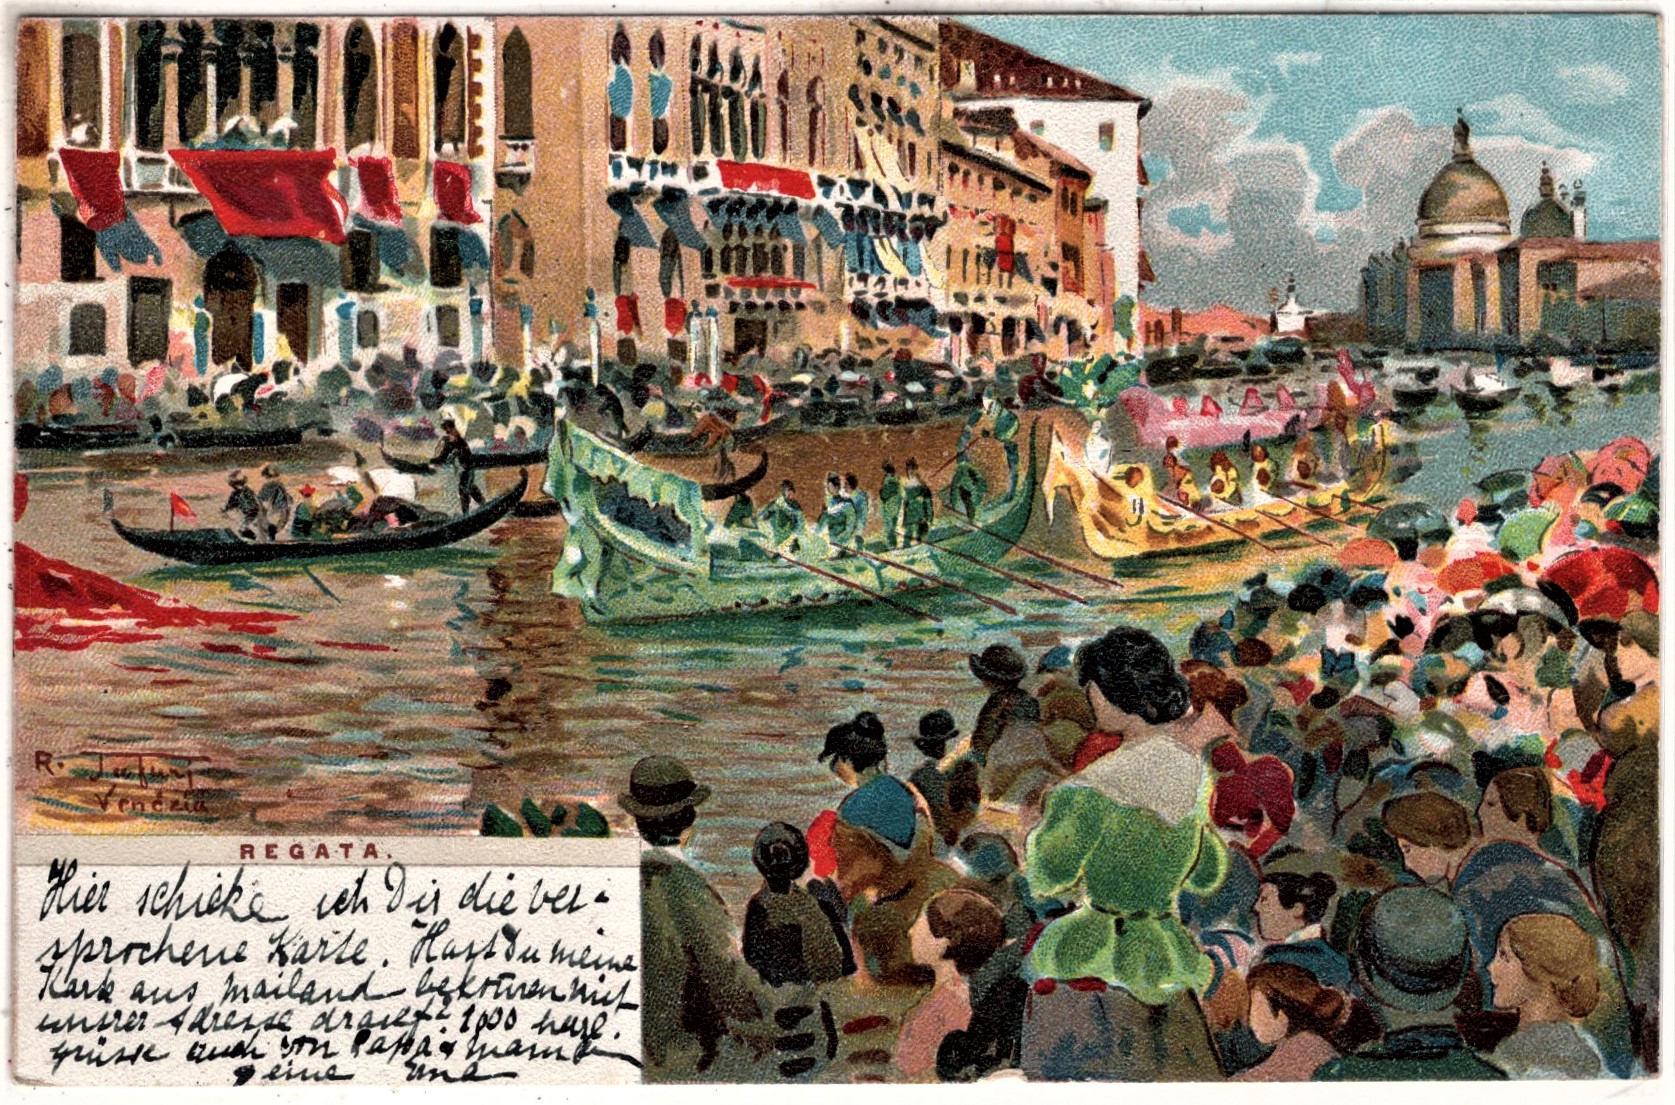 R. Tafuri
Venezia
REGATA.
Hier schicke ich Dir die ver-
sprochene Karte. Hast Du meine
Karte aus Mailand bekom̅en mit
unsrer Adresse drauf? 1000 herzl.
grüsse auch von Papa & Mama
Deine